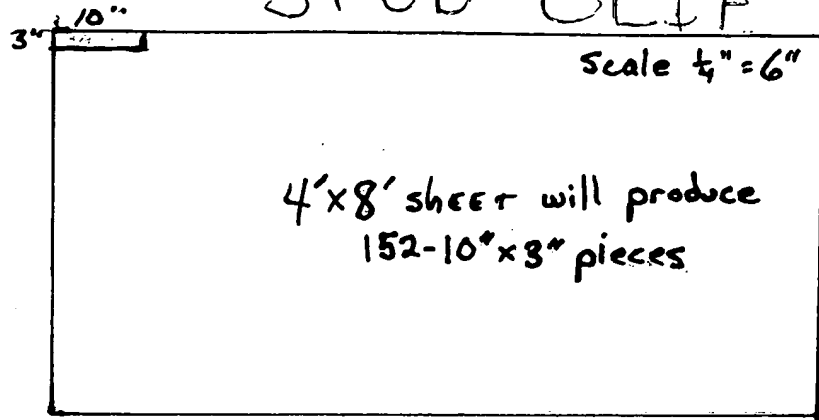 STUD CLIP
10"
3"
Scale ¼" = 6"
4'x8' sheet will produce
152-10"x3" pieces